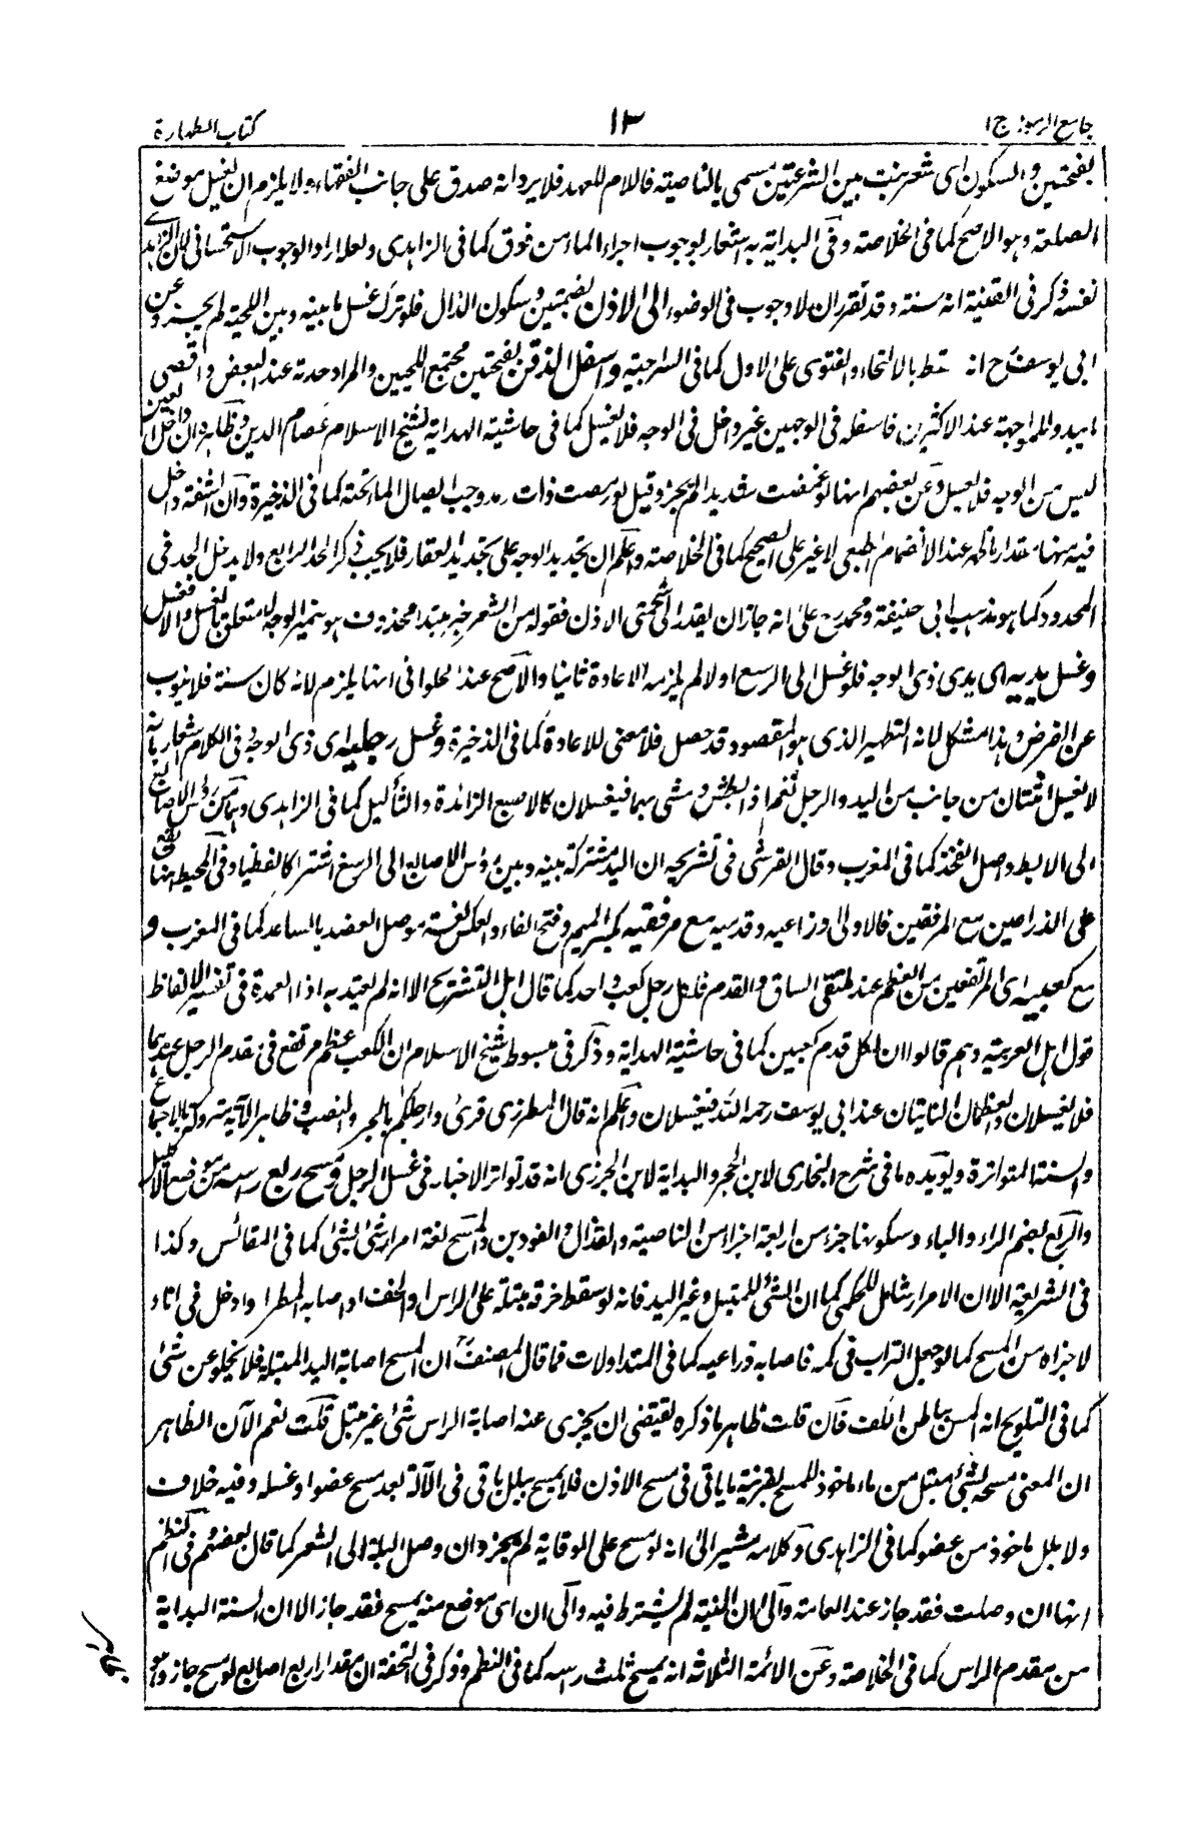 جامع الرموز ج١
١٣
كتاب الطهارة
بفتحتين والسكون اى شعر ينبت بين الشرعتين مسمى بالناصية فاللام للعهد فلا يرد انه صدق على جانب الفقهاء ولا يلزم ان يغسل موضع
الصلعة وهو الاصح كما فى الخلاصة وفى البداية به اشعار بوجوب اجراء الماء من فوق كما فى الزاهدى ولعله اراد الوجوب الاستحسانى لان الزاهدى
نفسه ذكر فى القنية انه سنة وقد تقرر ان لا وجوب فى الوضوء الى الاذن بضمتين وسكون الذال فلو ترك غسل ما بينه وبين اللحية لم يجز وعن
ابى يوسف رح انه سقط بالالتحاء والفتوى على الاول كما فى السراجية واسفل الذقن بفتحتين مجتمع اللحيين والمراد حدته عند البعض واقصى
ما يبدو للمواجهة عند الاكثرين فاسفله فى الوجهين غير داخل فى الوجه فلا يغسل كما فى حاشية الهداية لشيخ الاسلام عصام الدين وظاهره ان داخل العين
ليس من الوجه فلا يغسل وعن بعضهم انها لو غمضت شديدا لم يجز وقيل لو رمصت ذات رمد وجب ايصال الماء تحته كما فى الذخيرة وان الشفة داخل
فيه منها مقدار ما ظهر عند الانضمام الطبعى لا غير على الصحيح كما فى الخلاصة واعلم ان تحديد الوجه على تحديد العقار فلا يجب ذكر الحد الرابع ولا يدخل الحد فى
المحدود كما هو مذهب ابى حنيفة ومحمد رح على انه جاز ان يقدر الى شحمتى الاذن فقوله من الشعر خبر مبتدأ محذوف هو ضمير الوجه لا متعلق بالغسل والا فغسل
وغسل يديه اى يدى ذى الوجه فلو غسل الى الرسغ اولا لم يلزمه الاعادة ثانيا والاصح عند الحلوانى انها يلزم لانه كان سنة فلا ينوب
عن الفرض وهذا مشكل لانه التطهير الذى هو المقصود قد حصل فلا معنى للاعادة كما فى الذخيرة وغسل رجليه اى ذى الوجه وفى الكلام اشعار بانه
لا يغسل اثنتان من جانب من اليد والرجل نعم اذا بطش ومشى بهما فيغسلان كالاصبع الزائدة والثآليل كما فى الزاهدى وهما من رؤس الاصابع
الى الابط واصل الفخذ كما فى المغرب وقال القرشى فى تشريحه ان اليد مشتركة بينه وبين رؤس الاصابع الى الرسغ اشتراكا لفظيا وفى المحيط انها تقع
على الذراعين مع المرفقين فالاولى وذراعيه وقدميه مع مرفقيه بكسر الميم وفتح الفاء والعكس لغة موصل العضد بالساعد كما فى المغرب و
مع كعبيه اى المرتفعين من العظم عند ملتقى الساق والقدم فلكل رجل كعب واحد كما قال اهل التشريح الا انه لم يعتد به اذ العمدة فى تفسير الالفاظ
قول اهل العربية وهم قالوا ان لكل قدم كعبين كما فى حاشية الهداية وذكر فى مبسوط شيخ الاسلام ان الكعب عظم مرتفع فى مقدم الرجل عندهما
فلا يغسلان العظمان الناتيتان عند ابى يوسف رحمه الله فيغسلان واعلم انه قال المطرزى قرئ وارجلكم بالجر والنصب وظاهر الآية متروك بالاجماع
والسنة المتواترة ويؤيده ما فى شرح البخارى لابن الحجر والبداية لابن الجزرى انه قد تواتر الاخبار فى غسل الرجل ومسح ربع راسه
والربع بضم الراء والباء وسكونها جزء من اربعة اجزاء من الناصية والقذال والفودين والمسح لغة امرار شئ بشئ كما فى المقائس وكذا
فى الشريعة الا ان الامرار شامل للحكمى كما ان الشئ للمبتل وغير اليد فانه لو سقط خرقة مبتلة على الراس او الخف او اصابه المطر او ادخل فى اناء
لاجزاه من المسح كما لو جعل التراب فى كمه فاصابه ذراعيه كما فى المتداولات فما قال المصنف رح ان المسح اصابة اليد المبتلة فلا يخلو عن شئ
كما فى التلويح انه المس بباطن الكف فان قلت ظاهر ما ذكره يقتضى ان يجزى عنه اصابة الراس شئ غير مبتل قلت نعم الآن الظاهر
ان المعنى مسحه لشئ مبتل من ماء ماخوذ للمسح بقرينة ما ياتى فى مسح الاذن فلا يمسح ببلل باقى فى الآلة بعد مسح عضو او غسله وفيه خلاف
ولا ببلل ماخوذ من عضو كما فى الزاهدى وكلامه مشير الى انه لو مسح على الوقاية لم يجز وان وصل البلة الى الشعر كما قال بعضهم فى النظم
انها ان وصلت فقد جاز عند العامة والى ان النية لم يشترط فيه والى ان اى موضع منه يمسح فقد جاز الا ان السنة البداية
من مقدم الراس كما فى الخلاصة وعن الائمة الثلاثة انه يمسح ثلث راسه كما فى النظم وذكر فى التحفة ان مقدار اربع اصابع لو مسح جاز وهو